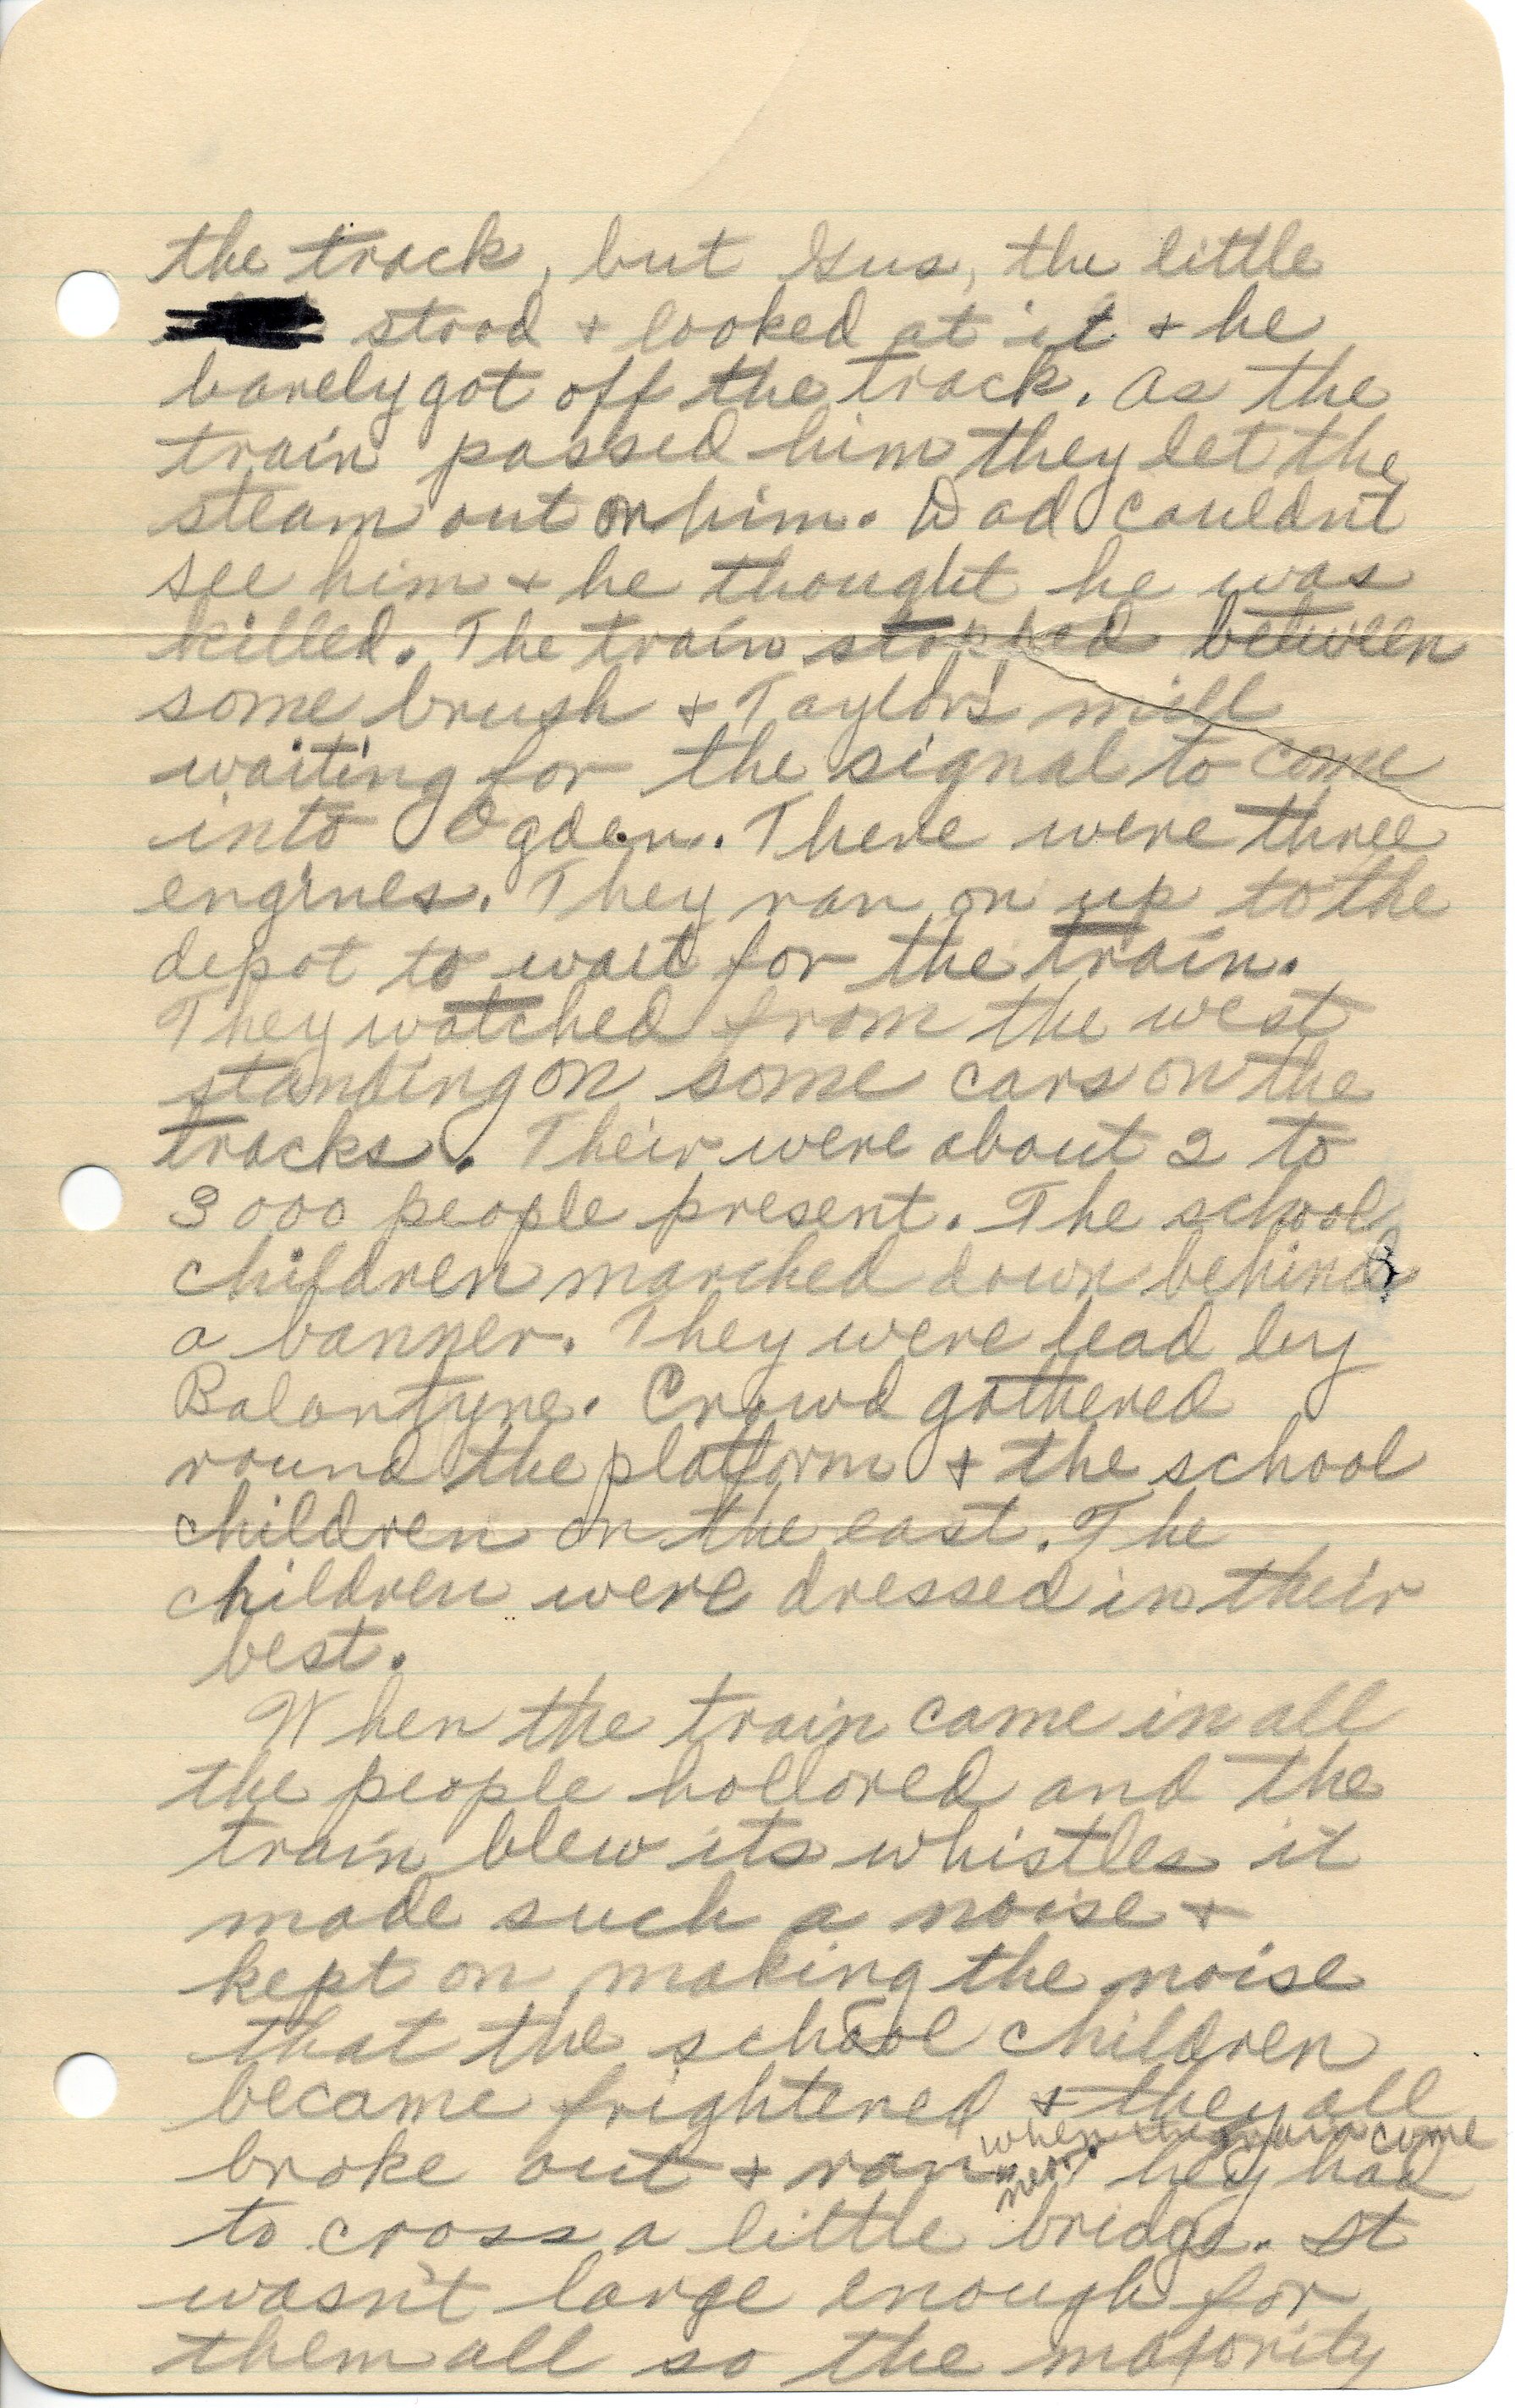 the track, but Gus, the little
stood + looked at it + he
barely got off the track. As the
train passed him they let the
steam out on him. Dad couldn't
see him + he thought he was
killed. The train stopped between
some brush + Taylors mill
waiting for the signal to come
into Ogden. There were three
engines. They ran on up to the
depot to wait for the train.
They watched from the west
standing on some cars on the
tracks. Their were about 2 to
3000 people present. The school
children marched down behind
a banner. They were lead by
Balantyne. Crowd gathered
round the platform + the school
children on the east. The
children were dressed in their
best.
When the train came in all
the people hollored and the
train blew its whistles it
made such a noise +
kept on making the noise
that the school children
became frightened + they all
when the train come
broke out + ran near They had
to cross a little bridge. It
wasn't large enough for
them all so the majority